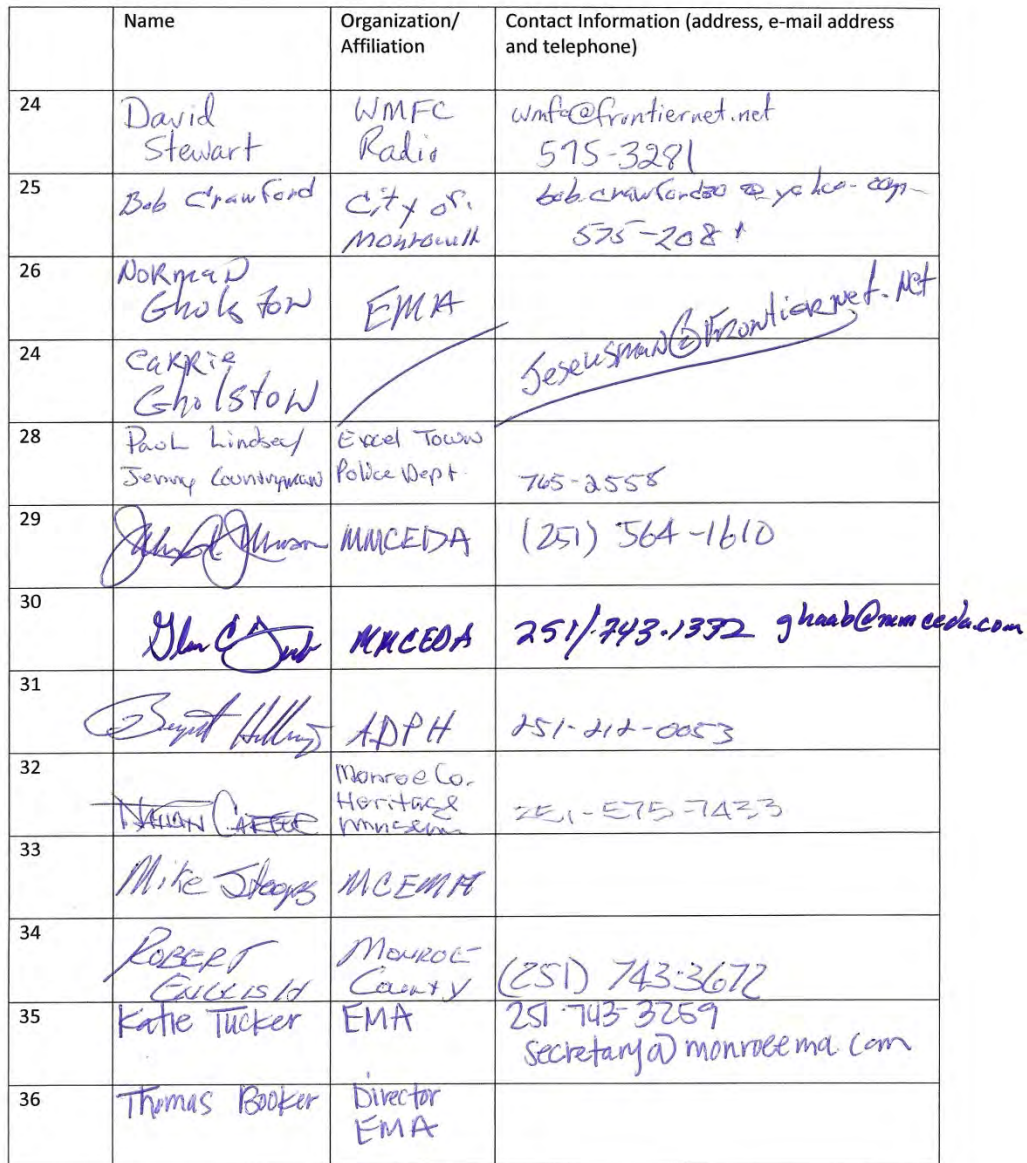 Name
Organization/
Affiliation
Contact Information (address, e-mail address
and telephone)
24
David
Stewart
WMFC
Radio
wmfc@frontiernet.net
575-3281
25
Bob Crawford
City of
575-208
26
Norman
Gholston
EMA
24
Carrie
Gholston
Jeseusman@Frontiernet.Net
28
Paul Lindsey
Jenny Countryman
Excel Town
Police Dept.
765-2558
29
MMCEDA
(251) 564-1610
30
MMCEDA
251/.743.1332 ghaab@mmceda.com
31
ADPH
251-212-0053
32
Nathan Carter
Monroe Co.
Heritage
Museum
251-575-7433
33
Mike
MCEMA
34
Robert
English
Monroe
County
(251) 743-3672
35
Katie Tucker
EMA
251-743-3259
secretary@monroeema.com
36
Thomas Booker
Director
EMA